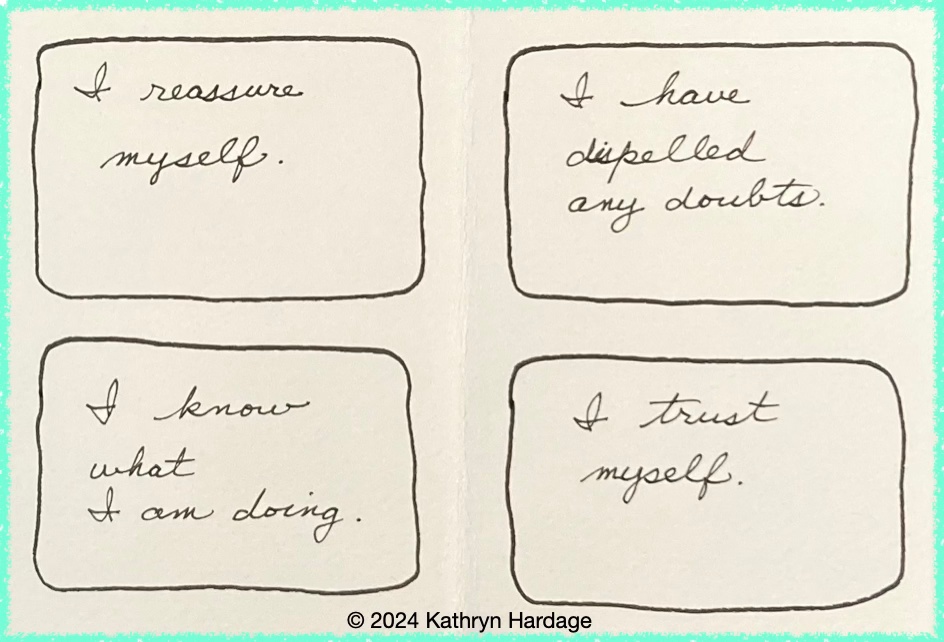 I reassure
myself.
I have
dispelled
any doubts.
I know
what
I am doing.
I trust
myself.
© 2024 Kathryn Hardage